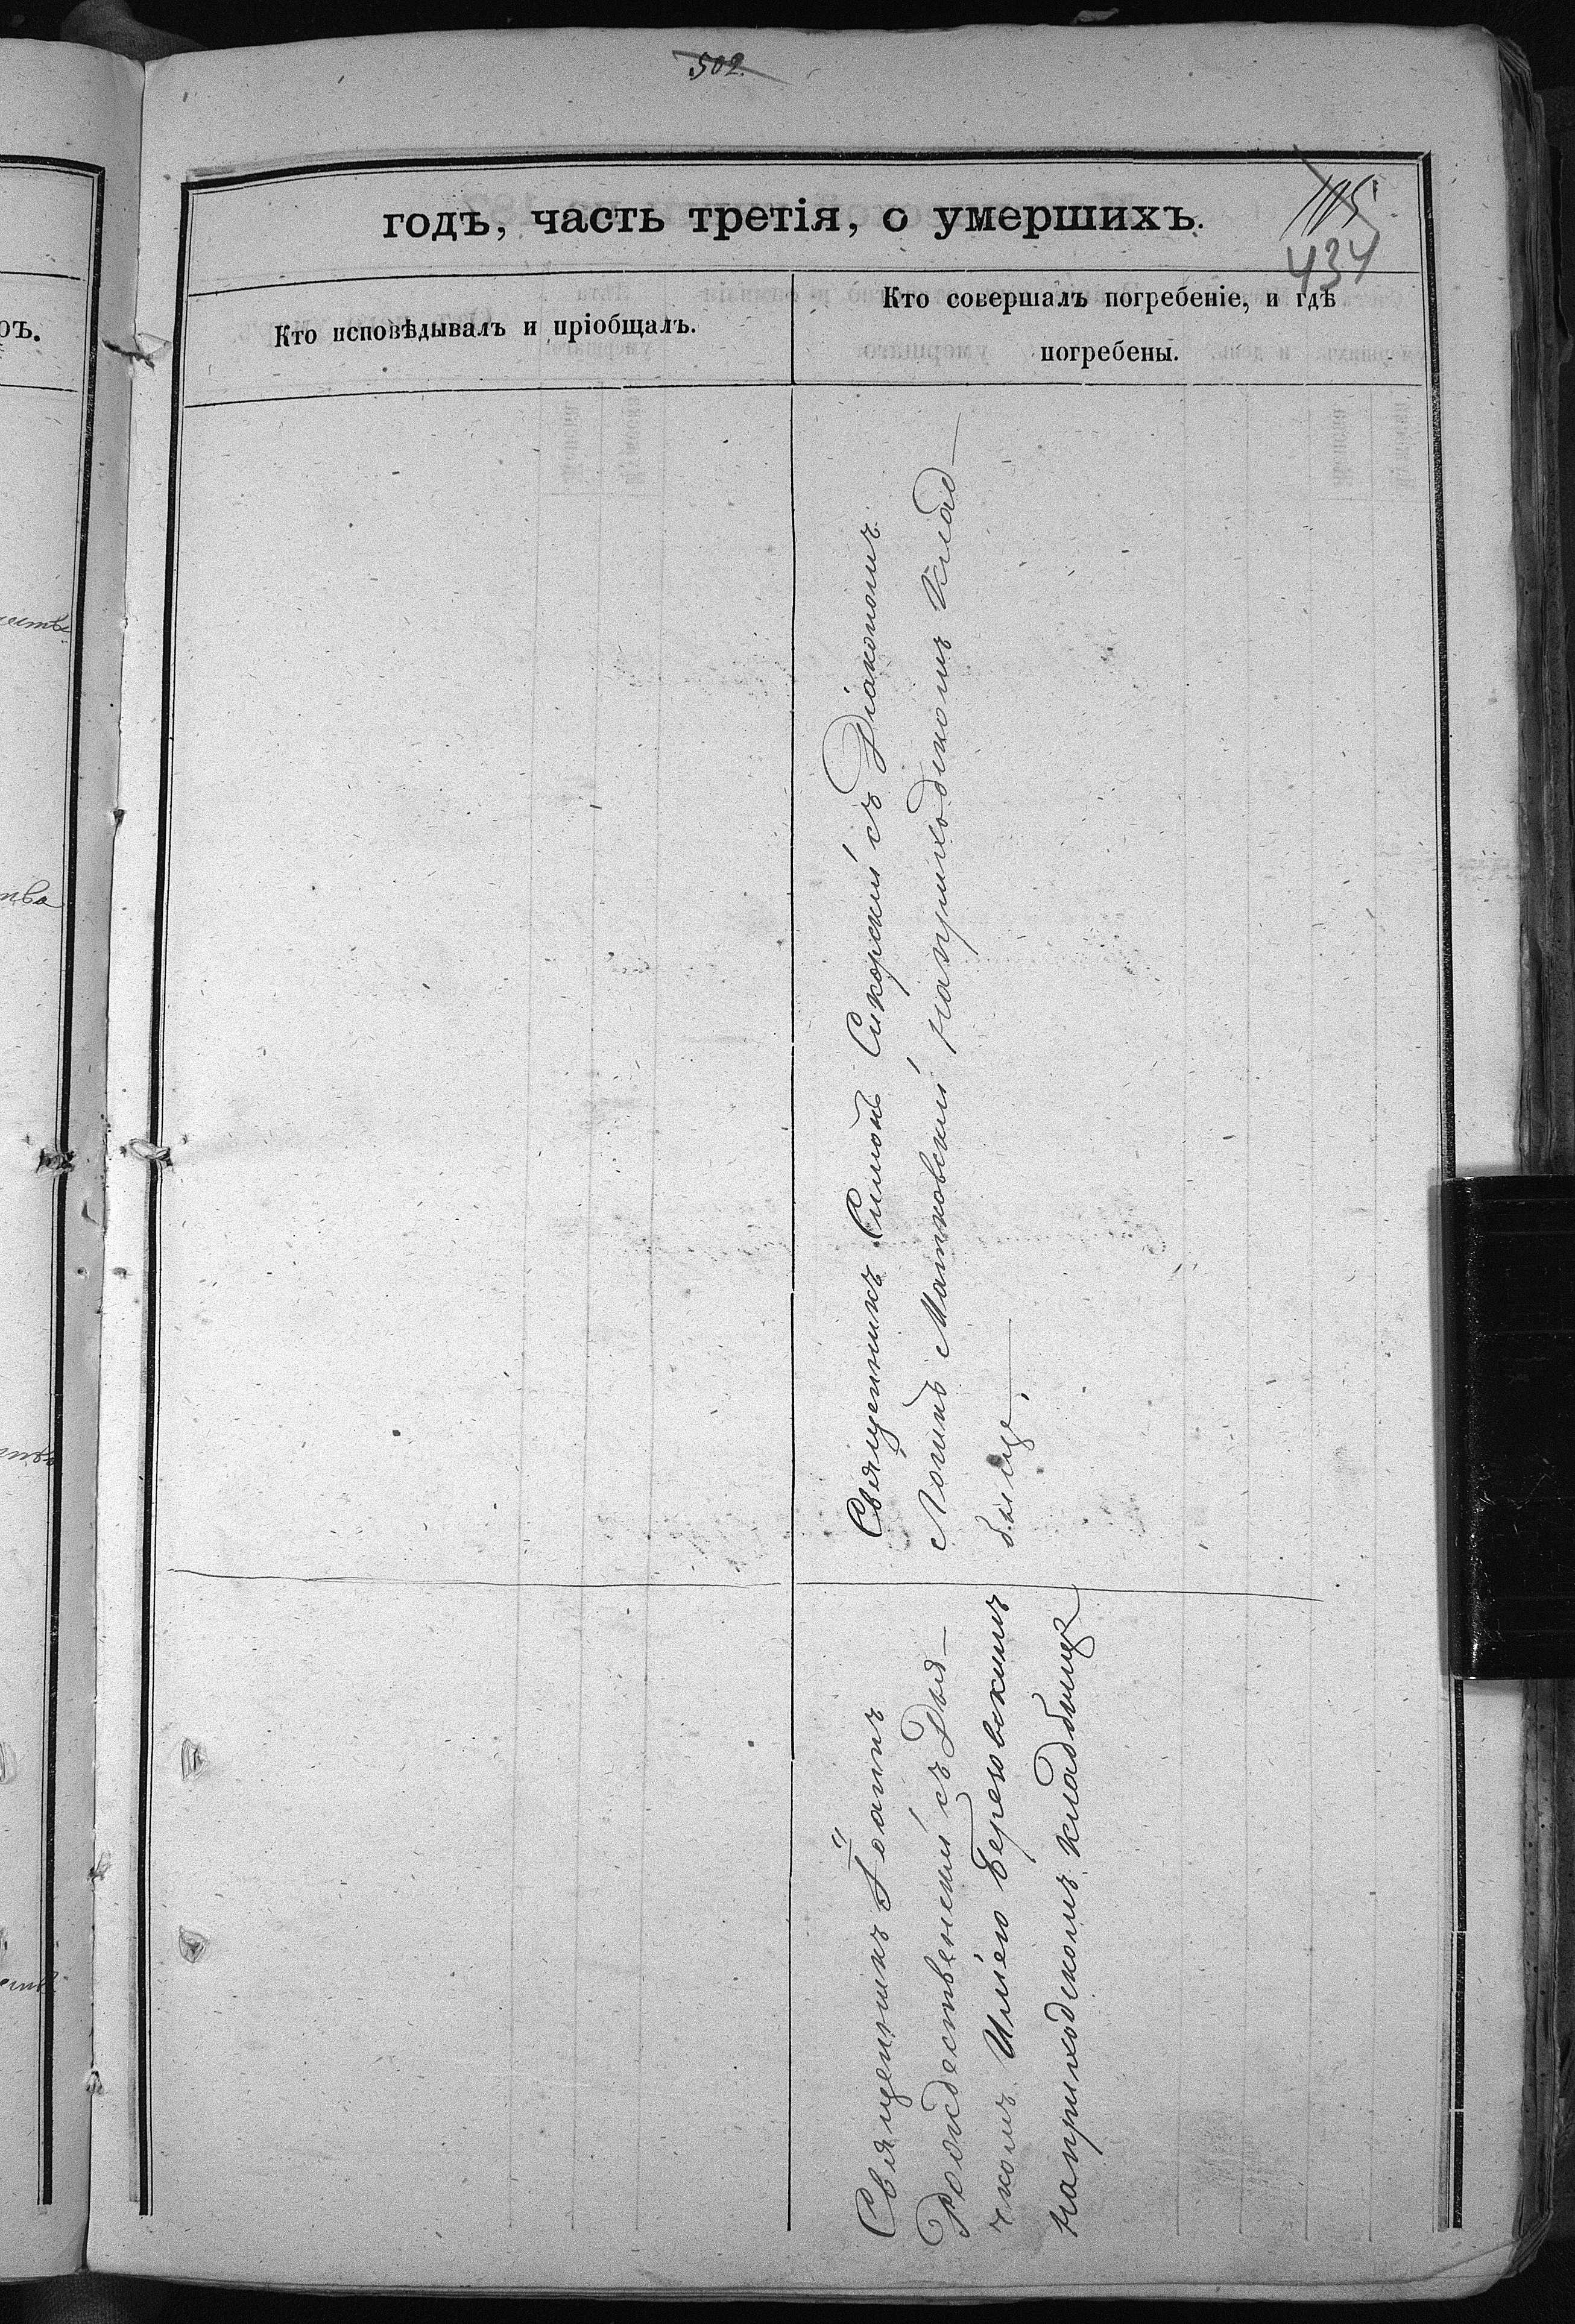 502.
годъ, часть третія, о умершихъ.
105
434
Кто исповѣдывалъ и пріобщалъ.
Кто совершалъ погребеніе, и гдѣ
погребены.
Священникъ Симонъ Сикорскій съ Діакономъ
Маньковскій на приходскомъ клад-
бищѣ.
Священникъ Іоаннъ
Рождественскій съ Дья-
чкомъ Иліею Березовскимъ
на приходскомъ кладбищѣ
ръ.